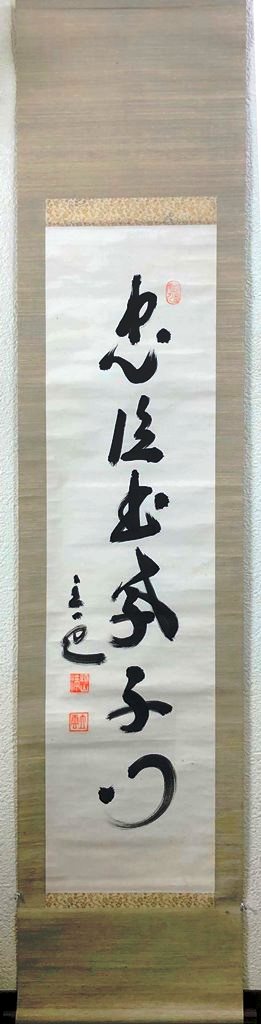 忠臣出孝子門